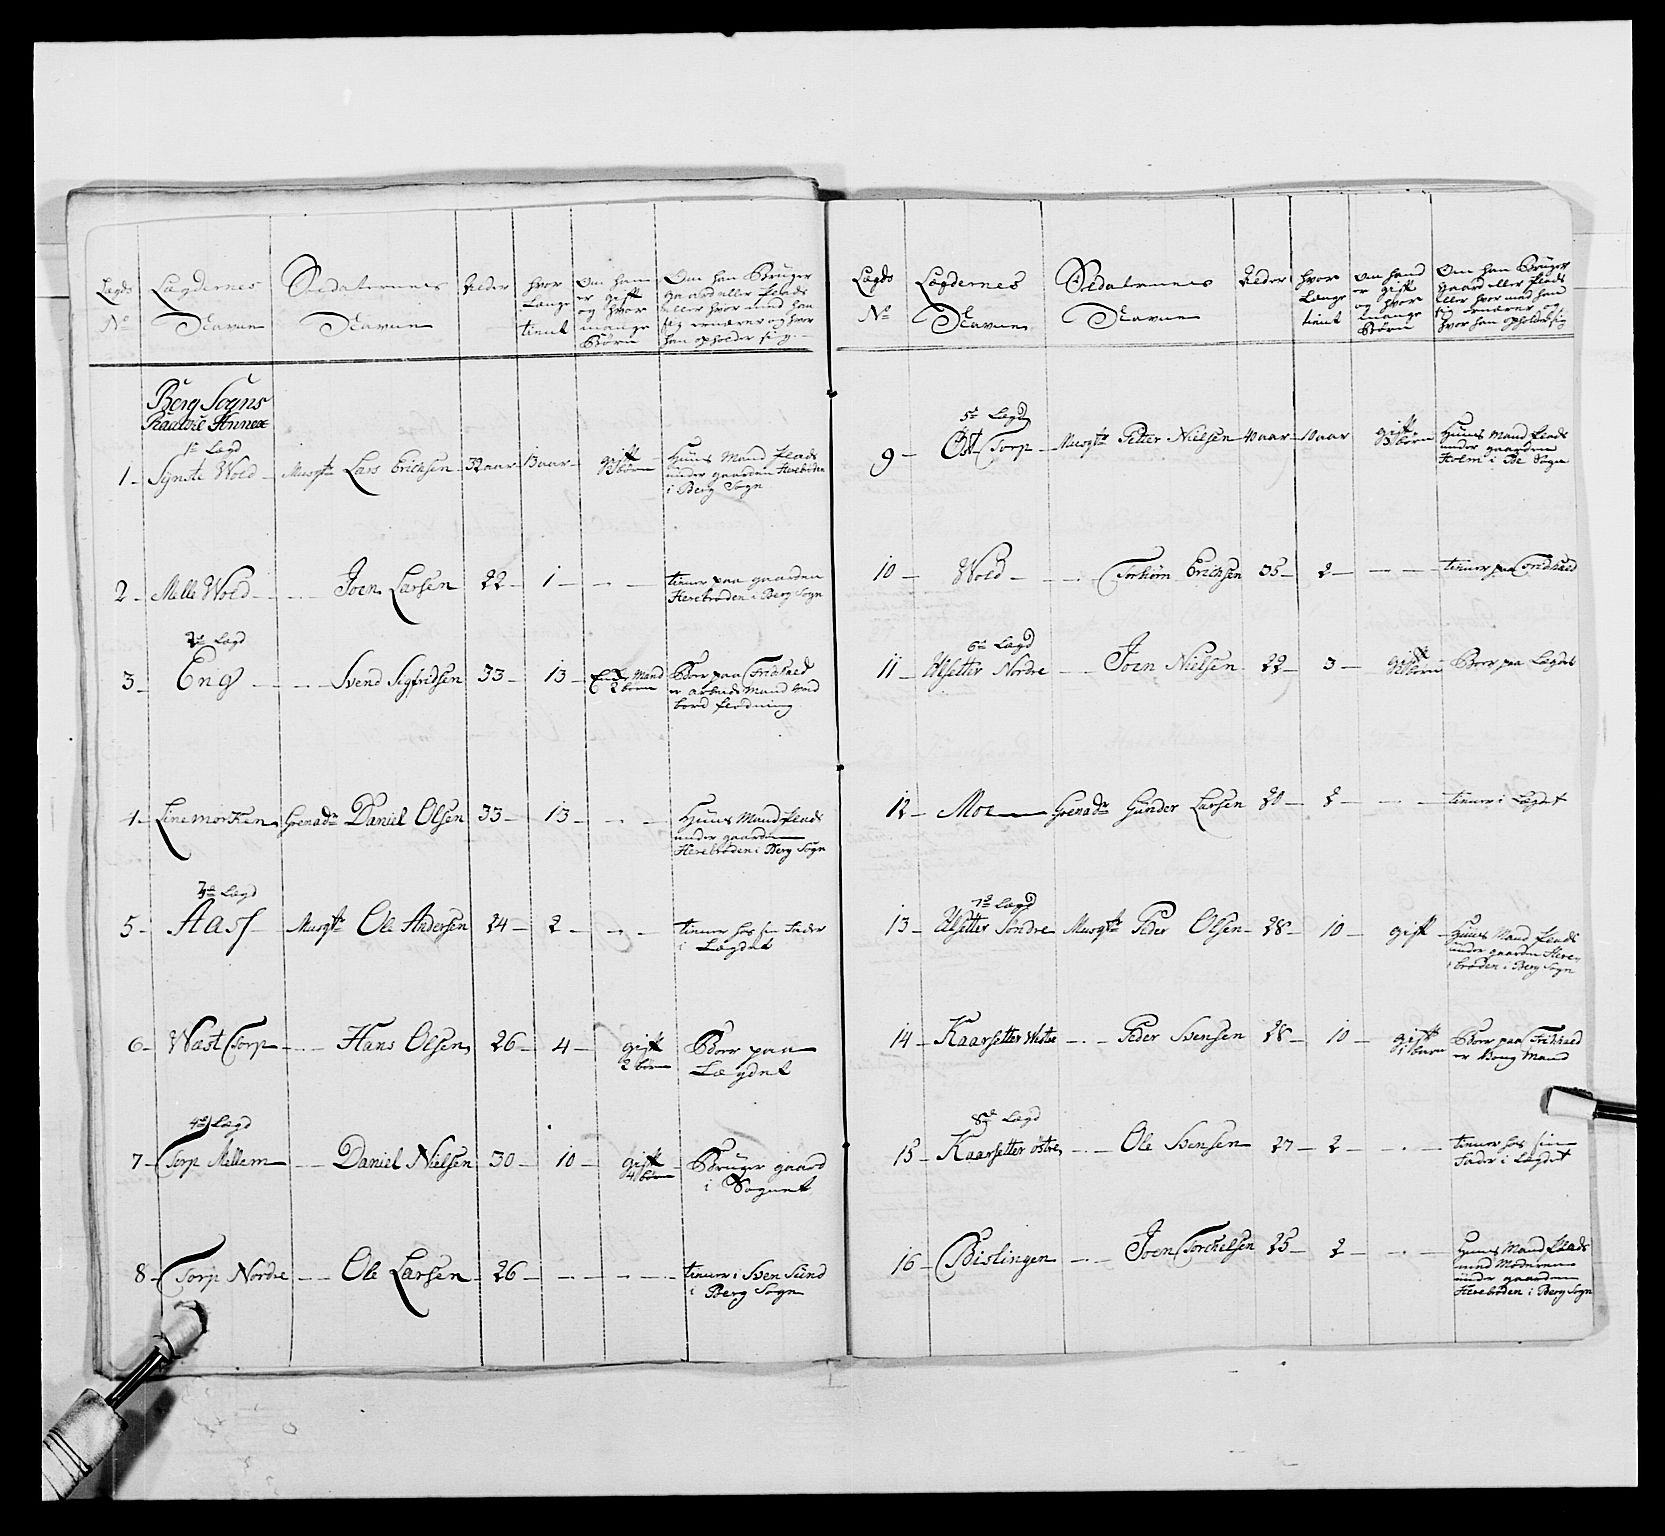 Lægds Lægdernes Soldaternes Alder hvor Om han Om han Bruger
No Navne Navne Længe er gift Gaard eller Plads
tient og hvor eller hvor med han
mange sig ernærer og hvor
Børn han opholder sig
Berg Sogns
Annex
1te Lægd
1 Synste Wold Musqtr Lars Erichsen 32 aar 13 aar gift Huus Mand Plads
3 børn under gaarden Herrebrøden
i Berg Sogn
2 Melle Wold Joen Larsen 22 1 tiener paa gaarden
Herebrøden i Berg Sogn
2de Lægd
3 Eng Svend Sigfridsen 33 13 Mand Boer paa Fridhald
2 børn er arbeids Mand ved
bord flødning
4 Linemorken Grenadr Daniel Olsen 33 13 Huus Mand Plads
under gaarden
Herebrøden i Berg Sogn
3de Lægd
5 Aas Musqtr Ole Andersen 24 2 tiener hos sin Fader
i Lægdet
6 Wæst Torp Hans Olsen 26 4 gift Boer paa
2 børn Lægdet
4de Lægd
7 Torp Mellem Daniel Nielsen 30 10 gift Bruger gaard
4 børn i Sognet
8 Torp Nordre Ole Larsen 26 tiener i Sven Sund
i Berg Sogn
Lægds Lægdernes Soldaternes Alder hvor Om hand Om han Bruger
No Navne Navne Længe er gift Gaard eller Plads
tient og hvor eller hvor med hand
mange sig ernærer og
Børn hvor han opholder sig
5te Lægd
9 Øst Torp Musqtr Petter Nielsen 40 aar 10 aar gift Huus Mand Plads
3 børn under gaarden
Holm i Be Sogn
10 Wold Torbiørn Erichsen 35 2 tiener paa Fridhald
6te Lægd
11 Ulsetter Nordre Joen Nielsen 22 3 gift Boer paa Lægdet
12 Moe Grenadr Gunder Larsen 20 2 tiener i Lægdet
7de Lægd
13 Ulsetter Søndre Musqtr Peder Olsen 28 10 gift Huus Mand Plads
under gaarden Here
brøden i Berg Sogn
14 Kaarsetter Westre Peder Svensen 28 10 gift Boer paa Fridhald
1 barn er Mand
8de Lægd
15 Kaarsetter østre Ole Svensen 27 2 tiener hos sin
Fader i Lægdet
16 Bislingen Joen Torchelsen 25 2 Huus Mand Plads
med Moderen
under gaarden
Herebrøden i Berg Sogn